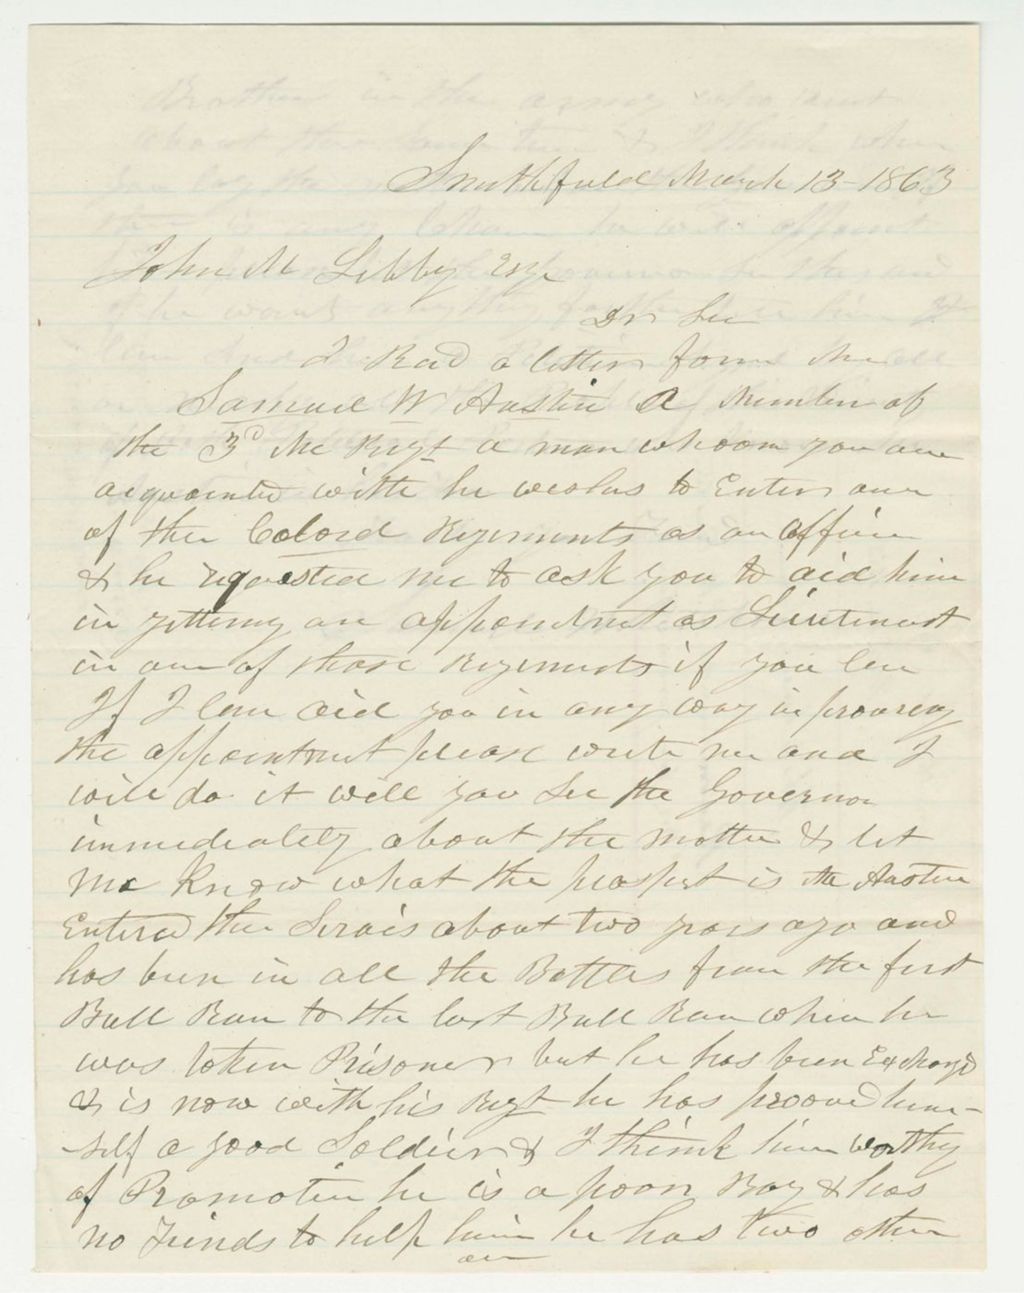 Smithfield March 13-1863
John M Libby Esqr
Dr Sir
I Recd a letter form Mr
Samuel W Austin a Member of
the 3d Me Regt a man whoom you are
acquainted with he wishes to Enter one
of the Colord Regiments as an officer
& he requested me to ask you to aid him
in getting an appointment as Lieutenant
in one of those Regiments if you can
If I can aid you in any way in procuring
the appointment please write me and I
will do it will you see the Governor
immediately about the matter & let
me know what the prospect is Mr Austin
Entered the Servis about two years ago and
has been in all the Battles from the first
Bull Run to the last Bull Run when he
was taken Prisoner but he has been Exchangd
& is now with his Regt he has prooved him-
self a good Soldier & I think him worthy
of Promotion he is a poor Boy & has
no Friends to help him he has two other